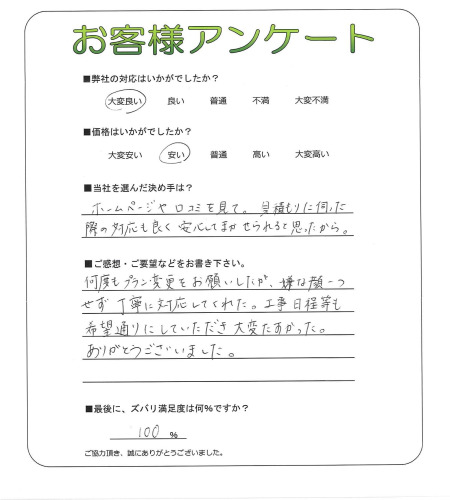 お客様アンケート
■弊社の対応はいかがでしたか？
大変良い 良い 普通 不満 大変不満
■価格はいかがでしたか？
大変安い 安い 普通 高い 大変高い
■当社を選んだ決め手は？
ホームページや口コミを見て。見積もりに伺った
際の対応も良く安心してまかせられると思ったから。
■ご感想・ご要望などをお書き下さい。
何度もプラン変更をお願いしたが、嫌な顔一つ
せず丁寧に対応してくれた。工事日程等も
希望通りにしていただき大変たすかった。
ありがとうございました。
■最後に、ズバリ満足度は何％ですか？
100 %
ご協力頂き、誠にありがとうございました。